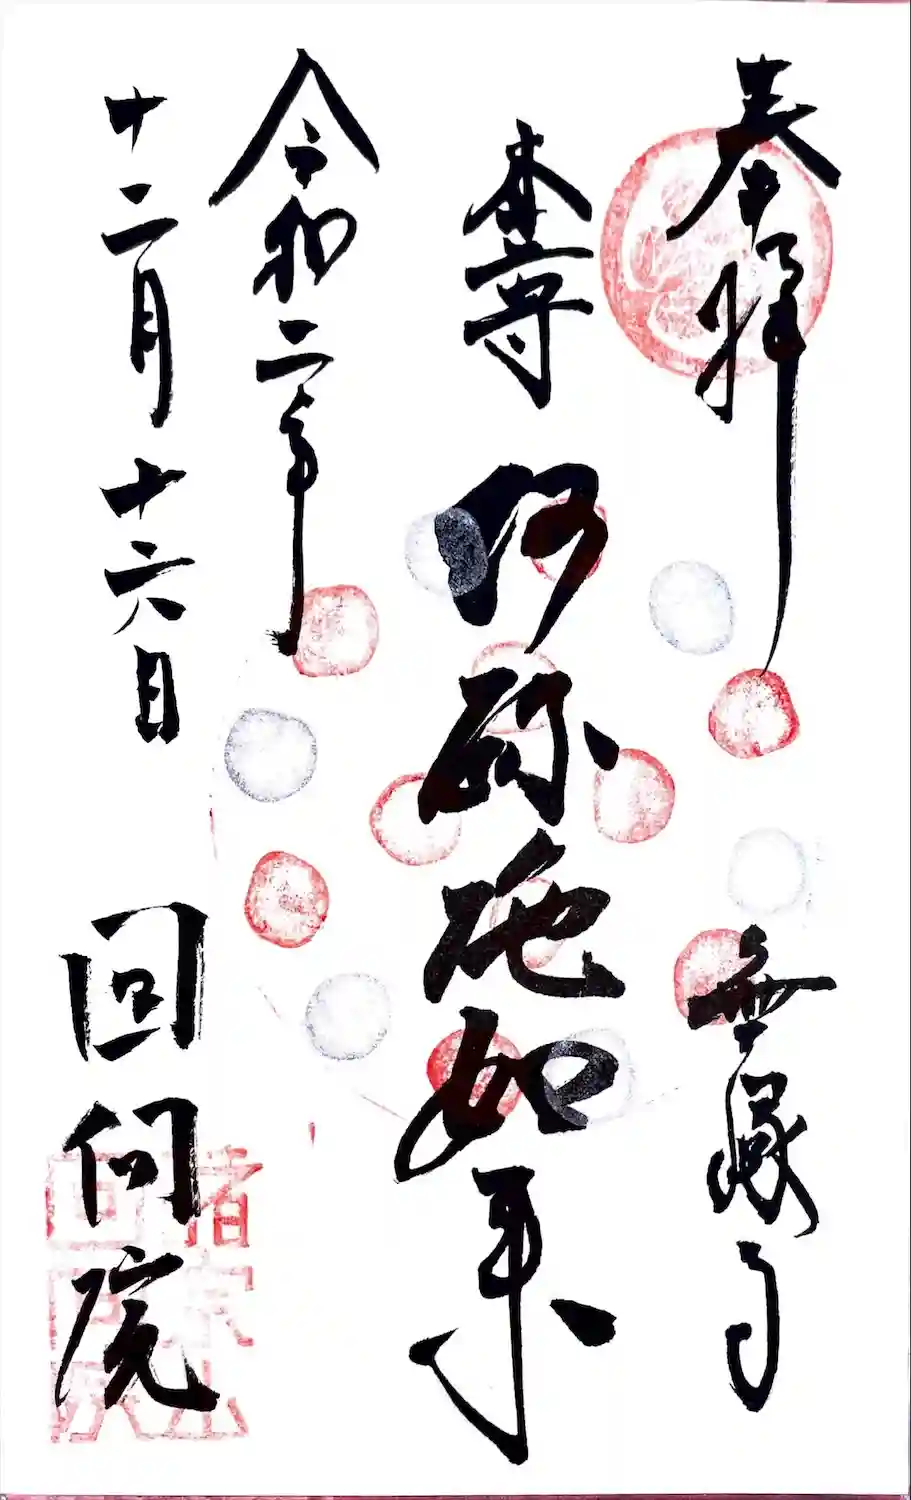 奉拝
無縁寺
本尊
阿弥陀如来
令和二年
十二月十六日
回向院
諸宗山
回向院